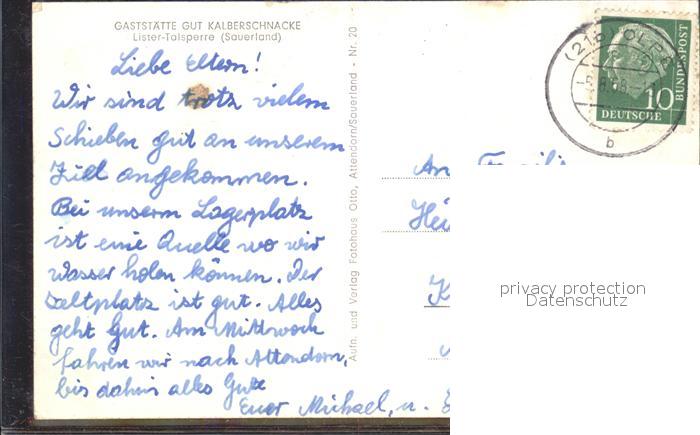 GASTSTÄTTE GUT KALBERSCHNACKE
Lister-Talsperre (Sauerland)
Liebe Eltern!
Wir sind trotz vielem
Schieben gut an unserem
Ziel angekommen.
Bei unserm Lagerplatz
ist eine Quelle wo wir
Wasser holen können. Der
Zeltplatz ist gut. Alles
geht Gut. Am Mittwoch
fahren wir nach Attendorn,
bis dahin alles Gute
Euer Michael, u.
Aufn. und Verlag Fotohaus Otto, Attendorn/Sauerland - Nr. 20
(21b) OLPE
b
10
DEUTSCHE
BUNDESPOST
An
privacy protection
Datenschutz